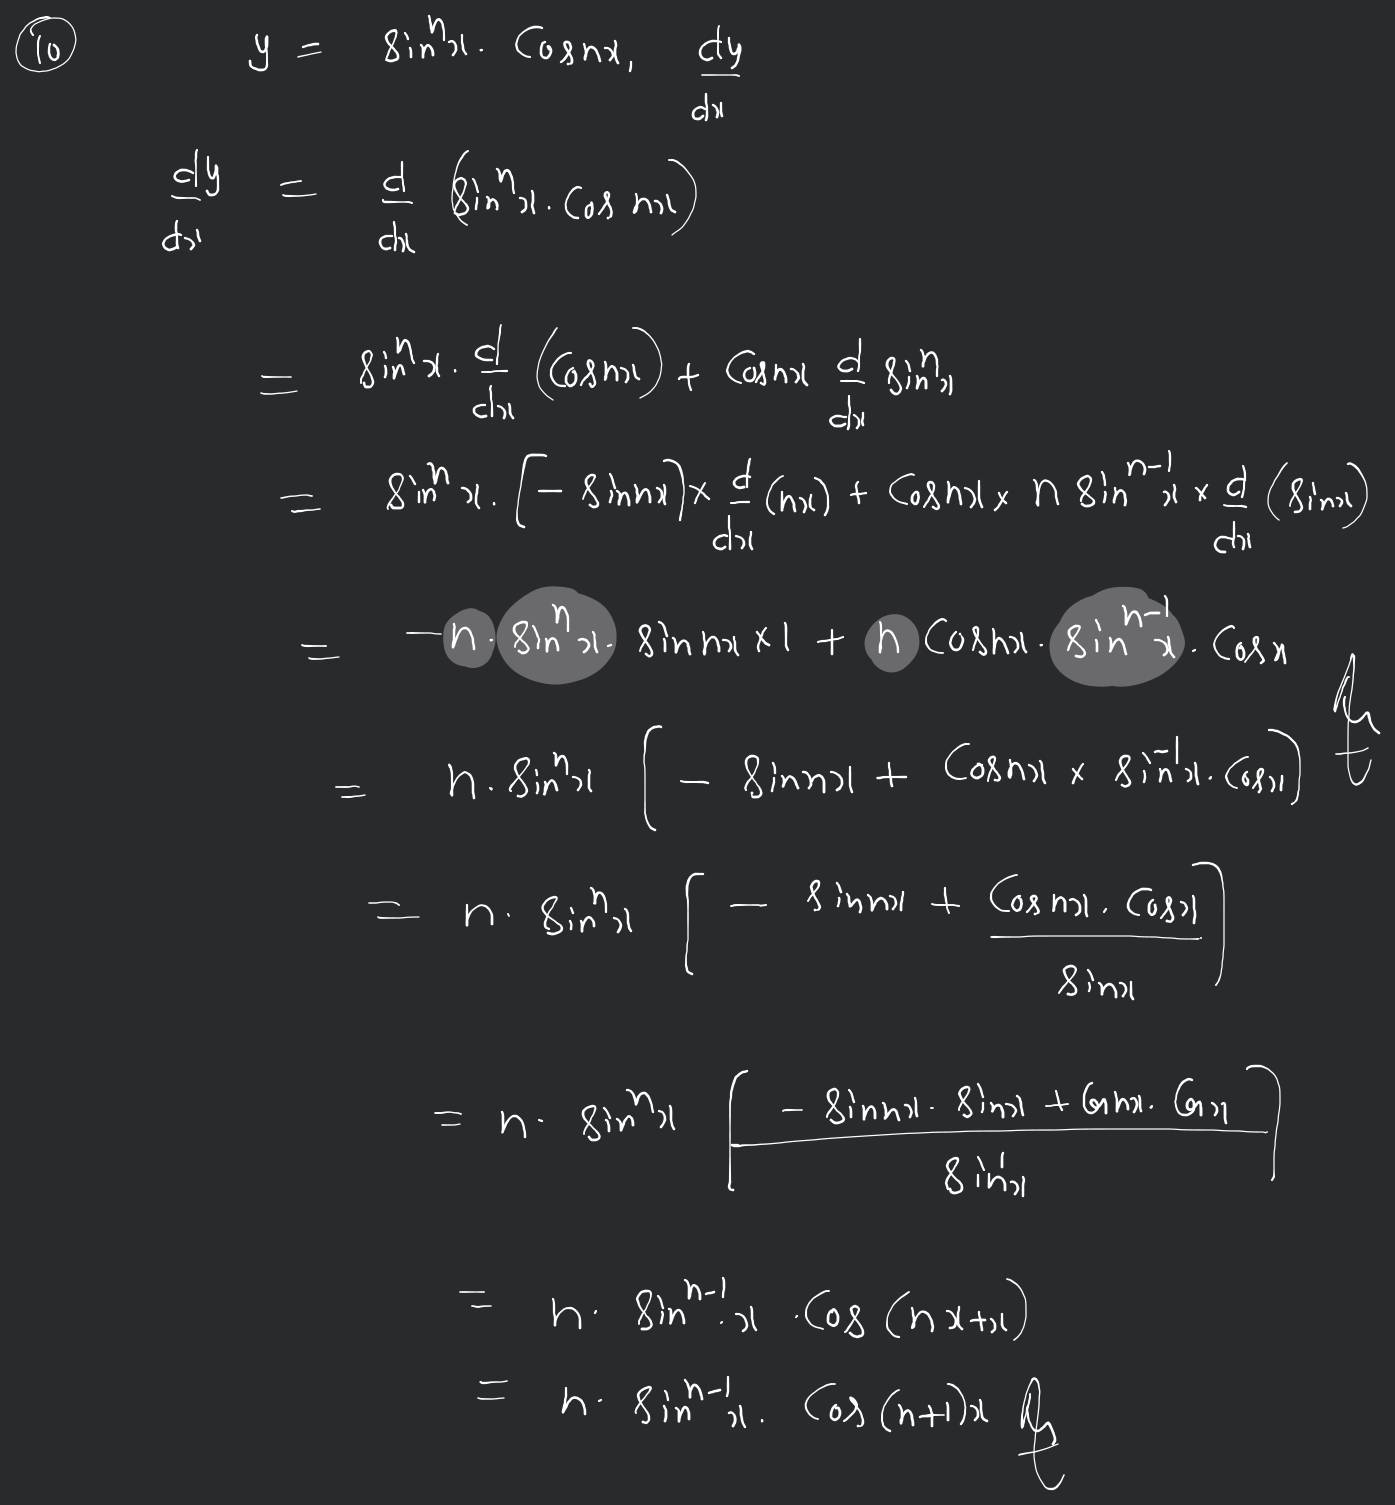 10 y = sinⁿx. Cosnx, dy/dx
dy/dx = d/dx (sinⁿx. Cos nx)
= sinⁿx. d/dx (Cosnx) + Cosnx d/dx sinⁿx
= sinⁿx. [- sinnx] x d/dx (nx) + Cosnx x n sinⁿ⁻¹x x d/dx (sinx)
= -n. sinⁿx. sin nx x 1 + n Cosnx. sinⁿ⁻¹x. Cosx
= n. sinⁿx [- sinnx + Cosnx x sin⁻¹x. Cosx]
= n. sinⁿx [- sinnx + Cosnx. Cosx / sinx]
= n. sinⁿx [- sinnx. sinx + Cosnx. Cosx / sin¹x]
= n. sinⁿ⁻¹.x .Cos (nx+x)
= n. sinⁿ⁻¹x. Cos (n+1)x